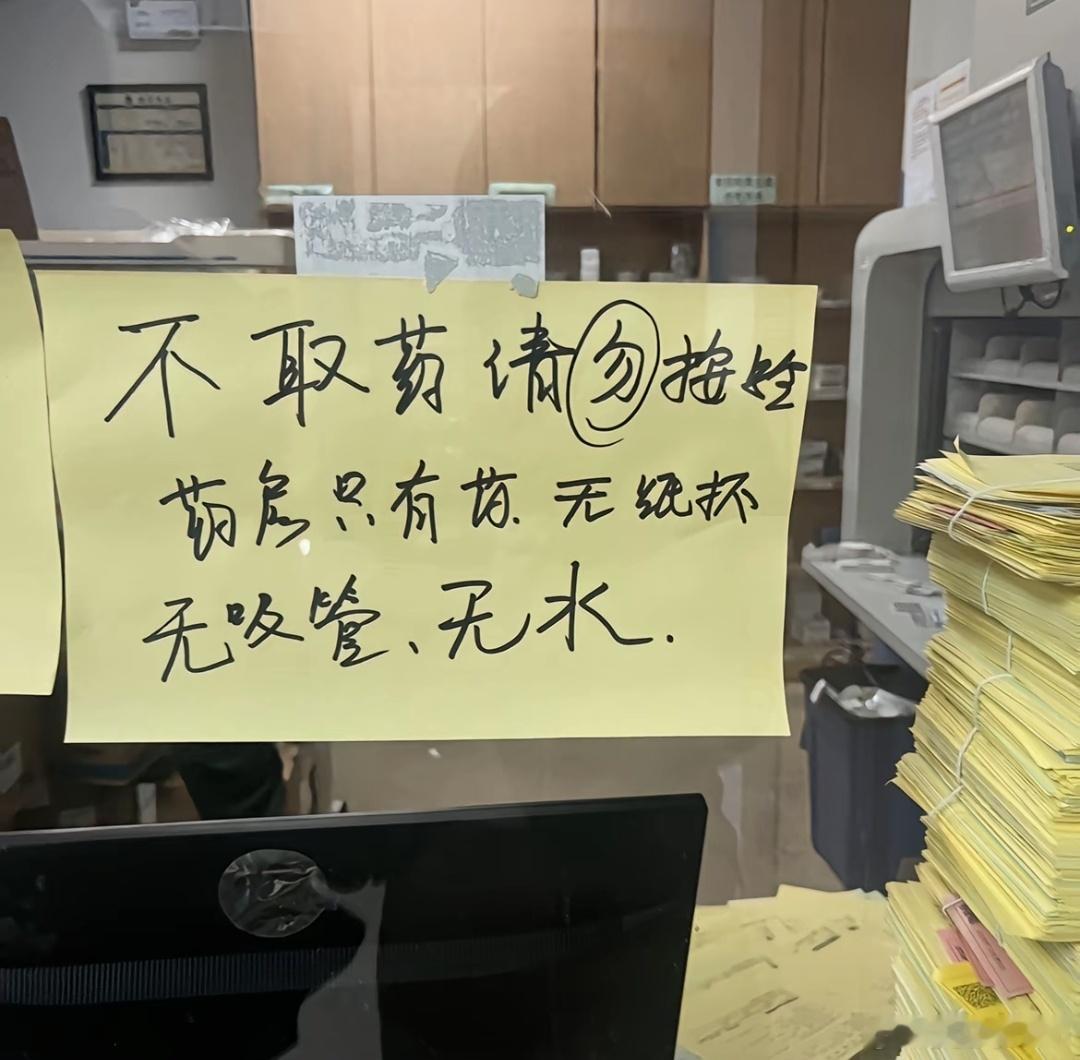 不取药请勿按铃
药房只有药.无纸杯
无吸管、无水.